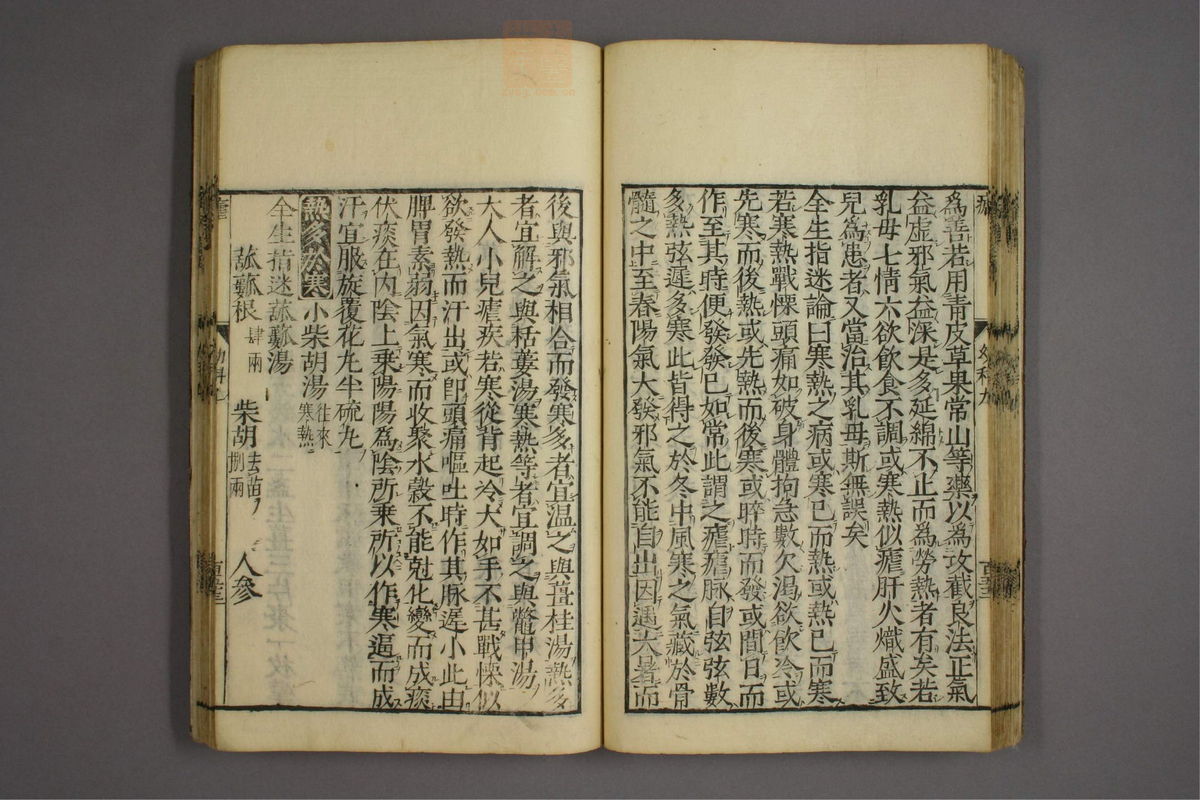 為善若用青皮草果常山等藥以為攻截良法正氣
益虛邪氣益深是多延綿不止而為勞熱者有矣若
乳母七情六欲飲食不調或寒熱似瘧肝火熾盛致
兒為患者又當治其乳母斯無誤矣
全生指迷論曰寒熱之病或寒已而熱或熱已而寒
若寒熱戰慄頭痛如破身體拘急數欠渴欲飲冷或
先寒而後熱或先熱而後寒或晬時而發或間日而
作至其時便發發已如常此謂之瘧瘧脉自弦弦數
多熱弦遲多寒此皆得之於冬中風寒之氣藏於骨
髓之中至春陽氣大發邪氣不能自出因遇大暑而
後與邪氣相合而發寒多者宜温之與薑桂湯熱多
者宜解之與栝蔞湯寒熱等者宜調之與鼈甲湯
大人小兒瘧疾若寒從背起冷大如手不甚戰慄似
欲發熱而汗出或即頭痛嘔吐時作其脉遲小此由
脾胃素弱因氣寒而收聚水穀不能尅化變而成痰
伏痰在内陰上乗陽陽為陰所乗所以作寒逼而成
汗宜服旋覆花丸半硫丸
熱多於寒 小柴胡湯 往來寒熱
全生指迷䒷䕨湯
䒷䕨根 肆兩 柴胡 去苗 捌兩 人參